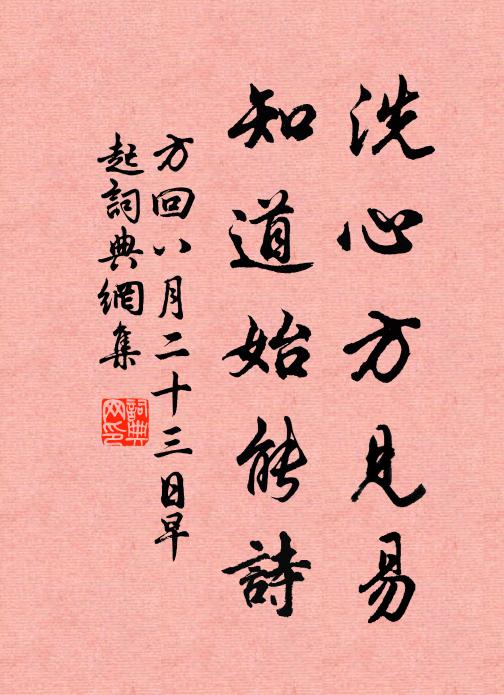 洗心方見易
知道始能詩
方回八月二十三日早
起詞典網集
詞典
网印